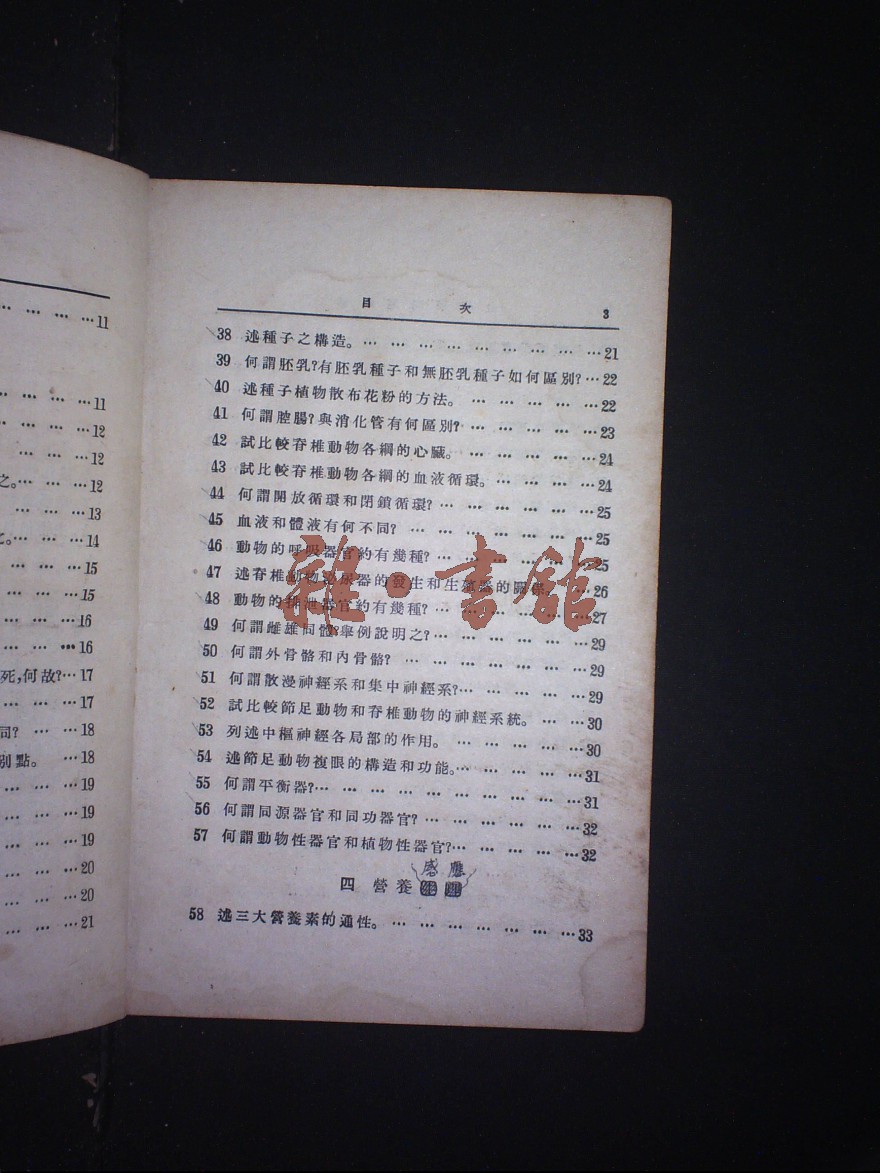 … … … …11
… … …11
… … …12
… … …12
之。… … …12
… … …13
… … …14
… … …15
… … …15
… … …16
… … …16
死,何故?…17
… … …17
同? … …18
別點。 …18
… … …19
… … …19
… … …19
… … …20
… … …20
… … …21
目次 3
38 述種子之構造。… … … … … … … … …21
39 何謂胚乳?有胚乳種子和無胚乳種子如何區別?…22
40 述種子植物散布花粉的方法。 … … … … …22
41 何謂腔腸?與消化管有何區別?… … … … …23
42 試比較脊椎動物各綱的心臟。… … … … …24
43 試比較脊椎動物各綱的血液循環。… … … …24
44 何謂開放循環和閉鎖循環?… … … … … …25
45 血液和體液有何不同? … … … … … … …25
46 動物的呼吸器官約有幾種?… … … … … …25
47 述脊椎動物泌尿器的發生和生殖器的關係。 …26
48 動物的排泄器官約有幾種? … … … … … …27
49 何謂雌雄同體?舉例說明之?… … … … … …29
50 何謂外骨骼和內骨骼? … … … … … … …29
51 何謂散漫神經系和集中神經系?… … … … …29
52 試比較節足動物和脊椎動物的神經系統。 … …30
53 列述中樞神經各局部的作用。 … … … … …30
54 述節足動物複眼的構造和功能。… … … … …31
55 何謂平衡器?… … … … … … … … …31
56 何謂同源器官和同功器官? … … … … … …32
57 何謂動物性器官和植物性器官?… … … … …32
感應
四 營養
58 述三大營養素的通性。 … … … … … … …33
雜·書館